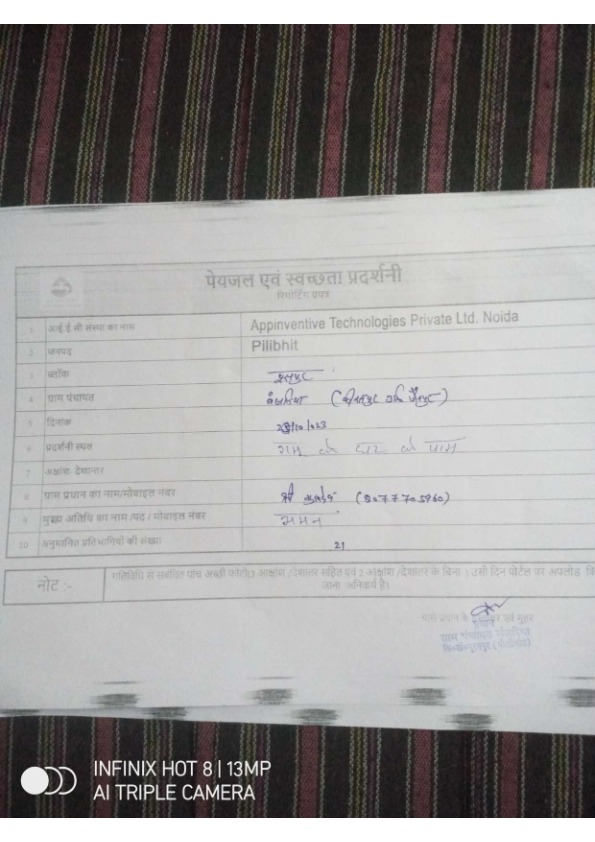 पेयजल एवं स्वच्छता प्रदर्शनी
रिपोर्टिंग प्रपत्र
1 आई.ई.सी संस्था का नाम Appinventive Technologies Private Ltd. Noida
2 जनपद Pilibhit
3 ब्लॉक
4 ग्राम पंचायत
5 दिनांक /10/023
6 प्रदर्शनी स्थल राजू के घर के पास
7 अक्षांश- देशान्तर
8 ग्राम प्रधान का नाम/मोबाइल नंबर श्री
9 मुख्य अतिथि का नाम /पद / मोबाइल नंबर
10 अनुमानित प्रतिभागियों की संख्या 21
नोट :- गतिविधि से संबंधित पांच अच्छी फोटो(3 आक्षांश /देशांतर सहित एवं 2 आक्षांश /देशांतर के बिना ) उसी दिन पोर्टल पर अपलोड
जाना अनिवार्य है।
ग्राम प्रधान के एवं मुहर
प्रधान
ग्राम पंचायत
INFINIX HOT 8 | 13MP
AI TRIPLE CAMERA